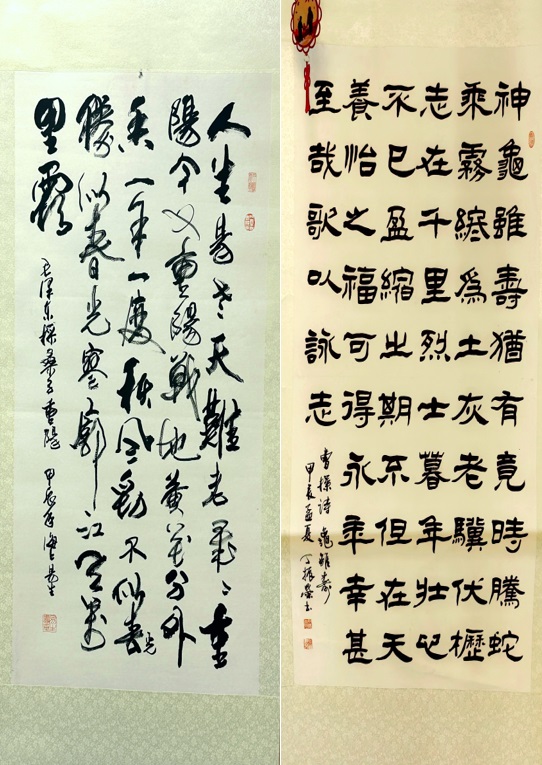 人生易老天難老歲〻重
陽今又重陽戰地黄花分外
香一年一度秋風勁不似春光
勝似春光寥廓江天萬
里霜
毛澤東採桑子重陽 甲辰年
神龜雖壽猶有竟時騰蛇
乘霧終為土灰老驥伏櫪
志在千里烈士暮年壯心
不已盈縮之期不但在天
養怡之福可得永年幸甚
至哉歌以詠志
曹操詩 龜雖壽
甲辰孟夏 丁振榮書